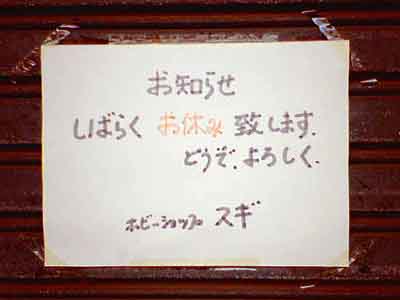 お知らせ
しばらく お休み 致します.
どうぞ.よろしく.
ホビーショップ スギ